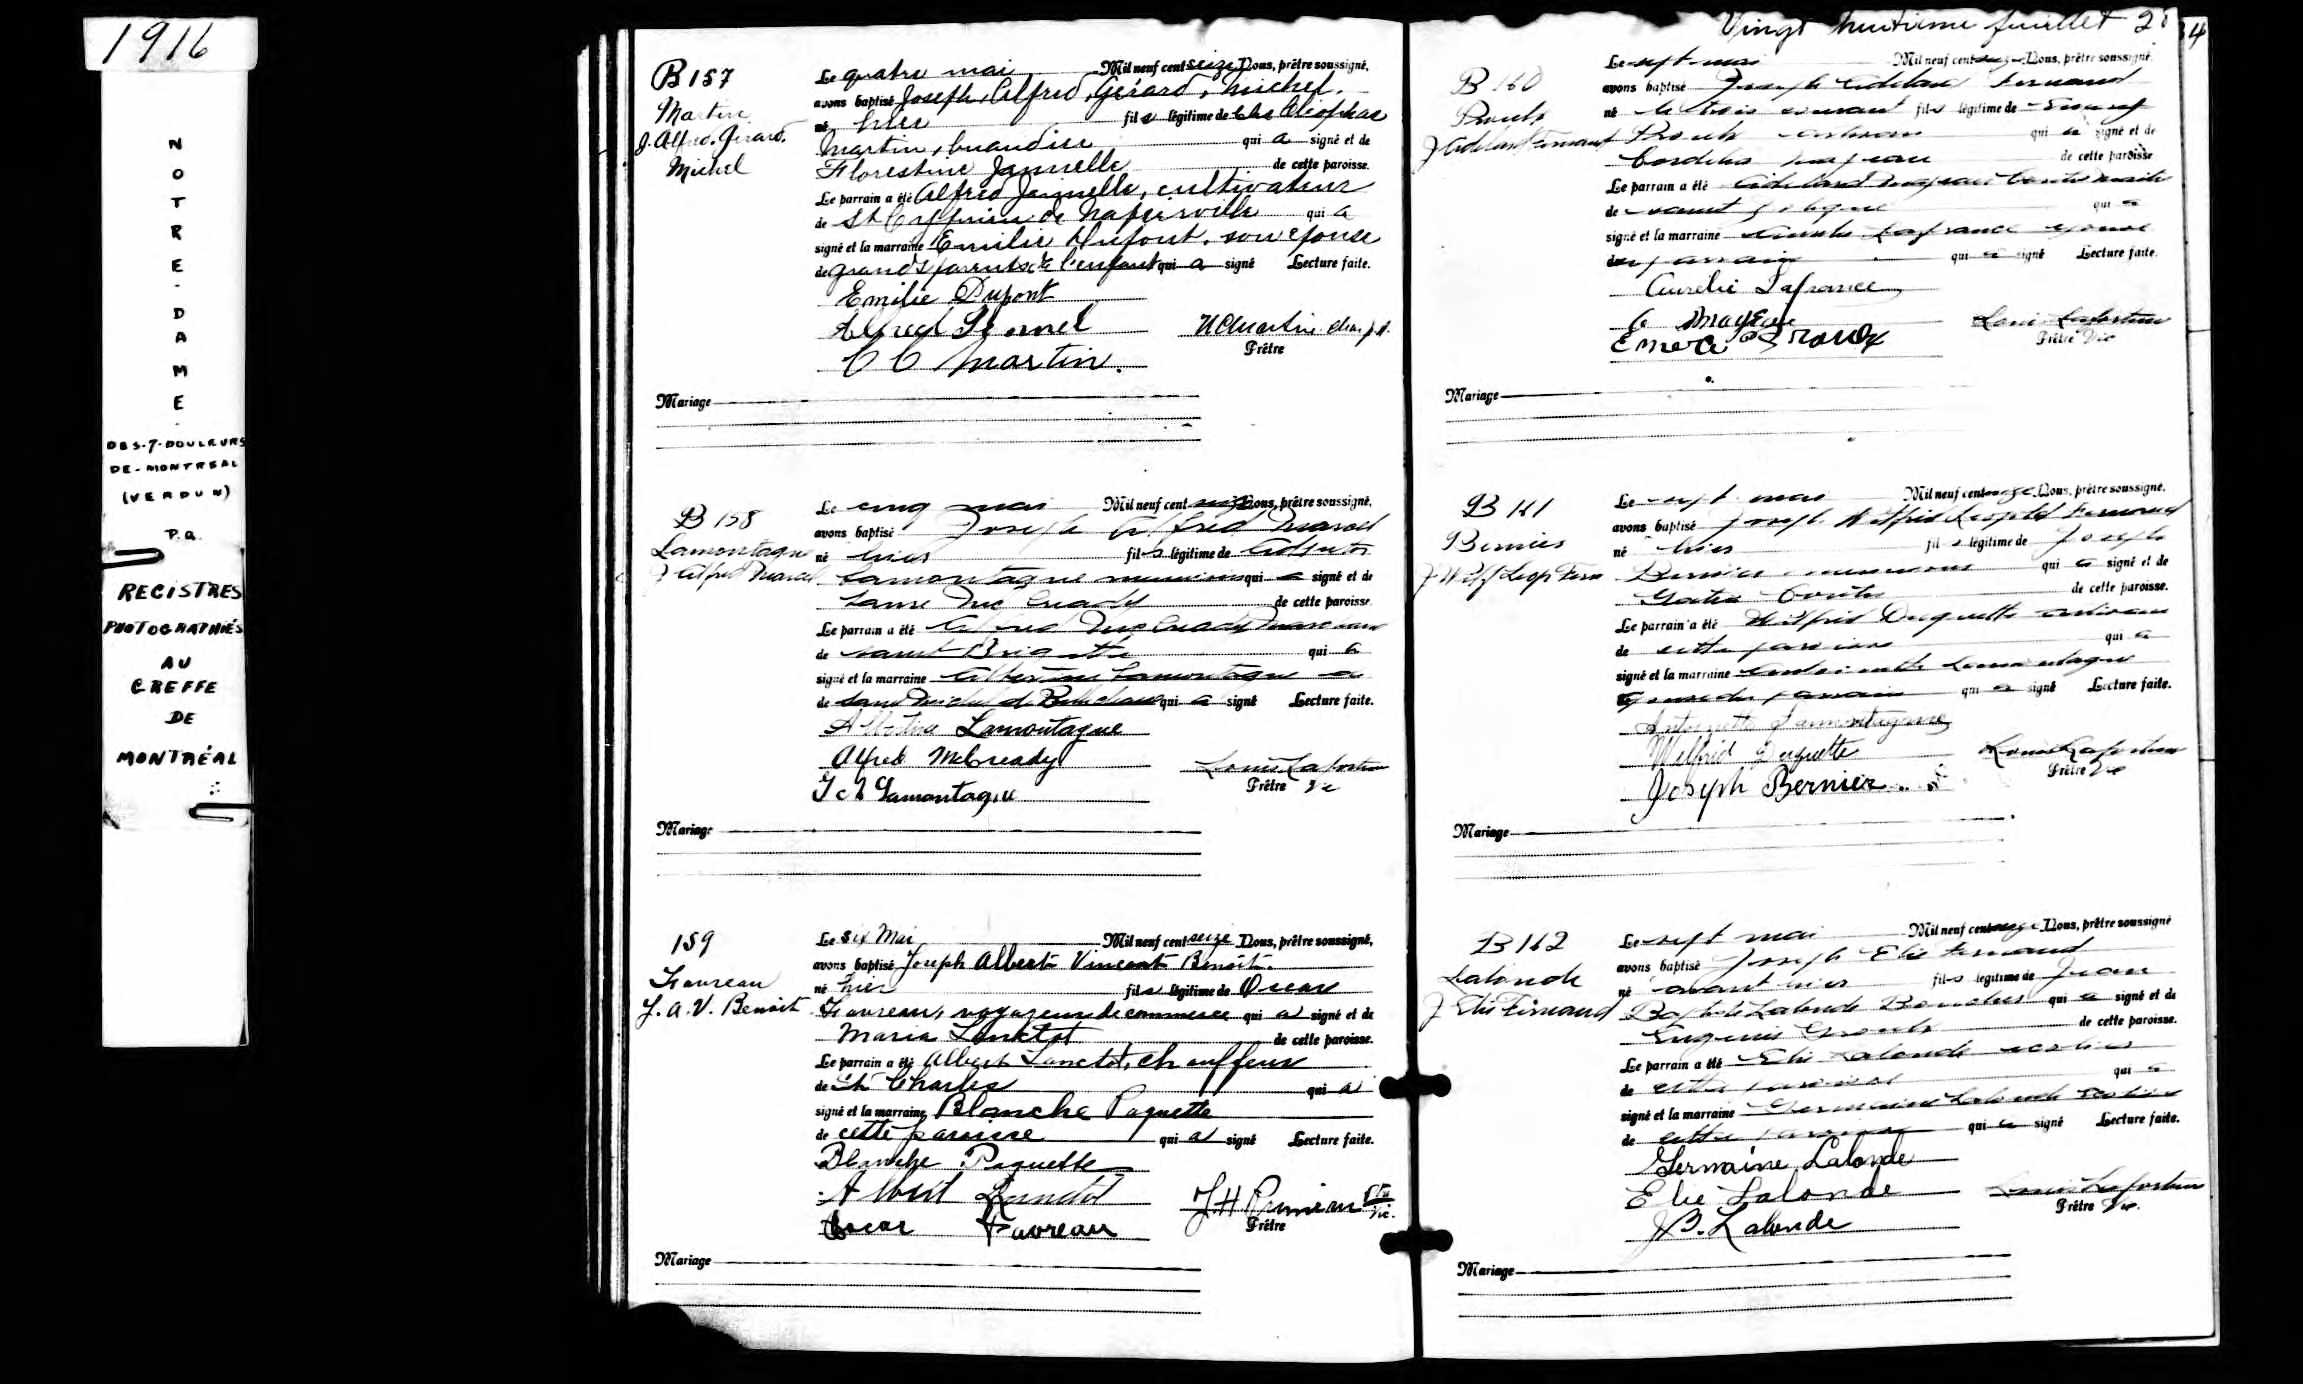 1916
NOTRE-DAME
DES-7-DOULEURS
DE-MONTREAL
(VERDUN)
P.Q.
REGISTRES
PHOTOGRAPHIÉS
AU
GREFFE
DE
MONTRÉAL
B 157
Martin
J. Alfred. Gérard.
Michel
Le quatre mai Mil neuf cent seize Nous, prêtre soussigné,
avons baptisé Joseph, Alfred, Gérard, Michel,
né hier fils légitime de
Martin, qui a signé et de
Florestine Jannelle de cette paroisse.
Le parrain a été Alfred Jannelle, cultivateur
de St Cyprien de Napierville qui a
signé et la marraine Emilie Dupont, son épouse
de grands parents de l'enfant qui a signé Lecture faite.
Emilie Dupont
Alfred
C C Martin.
Prêtre
Mariage
B 158
Lamontagne
J Alfred Marcel
Le cinq mai Mil neuf cent seize Nous, prêtre soussigné,
avons baptisé Joseph Alfred Marcel
né hier fils légitime de
Lamontagne qui a signé et de
de cette paroisse
Le parrain a été Alfred
de qui a
signé et la marraine Albertine Lamontagne
de Saint Michel de qui a signé Lecture faite.
Albertine Lamontagne
Alfred McCready
Lamontagne
Louis Lafortune
Prêtre Vic
Mariage
159
Favreau
J. A. V. Benoit
Le six Mai Mil neuf cent seize Nous, prêtre soussigné,
avons baptisé Joseph Albert Vincent Benoit.
né hier fils légitime de Oscar
Favreau, voyageur de commerce qui a signé et de
Maria Lanctot de cette paroisse.
Le parrain a été Albert Lanctot, chauffeur
de St Charles qui a
signé et la marraine Blanche Paquette
de cette paroisse qui a signé Lecture faite.
Blanche Paquette
Albert Lanctot
Oscar Favreau
J. H.
Prêtre
Mariage
Vingt huitième feuillet 28
B 160
Proulx
J Adelard Fernand
Le sept mai Mil neuf cent seize Nous, prêtre soussigné,
avons baptisé Joseph Adelard Fernand
né le trois courant fils légitime de
Proulx qui a signé et de
Cordelia Majeau de cette paroisse
Le parrain a été Adelard Majeau
de qui a
signé et la marraine Aurelie Lafrance épouse
du parrain qui a signé Lecture faite.
Aurelie Lafrance
A Mayeau
Proulx
Louis Lafortune
Prêtre Vic
Mariage
B 161
Bernier
J Wilf Leop Fern
Le sept mai Mil neuf cent seize Nous, prêtre soussigné,
avons baptisé Joseph Wilfrid Leopold Fernand
né hier fils légitime de Joseph
Bernier qui a signé et de
de cette paroisse.
Le parrain a été Wilfrid Duquette
de cette paroisse qui a
signé et la marraine Antoinette Lamontagne
épouse du parrain qui a signé Lecture faite.
Antoinette Lamontagne
Wilfrid Duquette
Joseph Bernier
Louis Lafortune
Prêtre Vic
Mariage
B 162
Lalonde
J Elie Fernand
Le sept mai Mil neuf cent seize Nous, prêtre soussigné
avons baptisé Joseph Elie Fernand
né avant hier fils légitime de Jean
Baptiste Lalonde Boucher qui a signé et de
Eugenie de cette paroisse.
Le parrain a été Elie Lalonde
de cette paroisse qui a
signé et la marraine Germaine Lalonde
de cette paroisse qui a signé Lecture faite.
Germaine Lalonde
Elie Lalonde
J.B. Lalonde
Louis Lafortune
Prêtre Vic.
Mariage